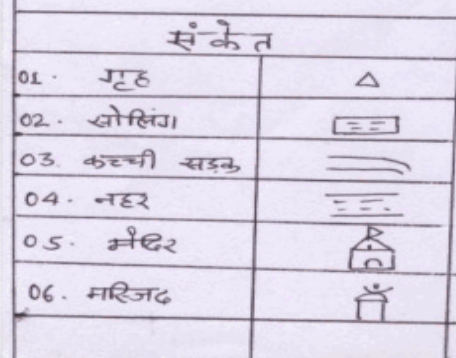 संकेत
01. गृह
02. सोलिंग
03. कच्ची सड़क
04. नहर
05. मंदिर
06. मस्जिद